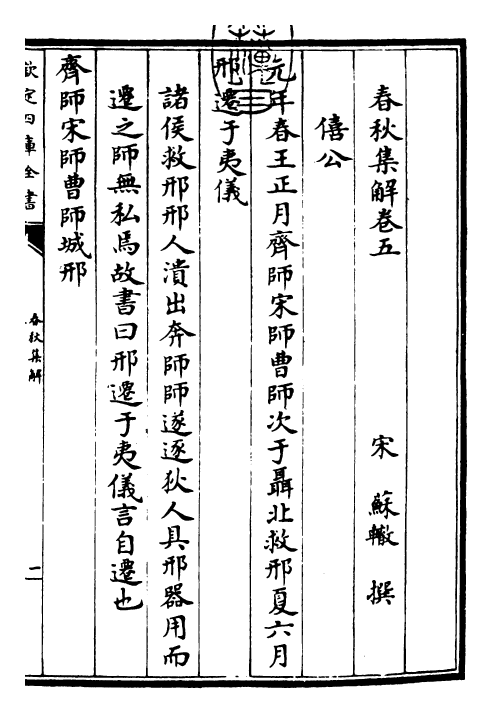 春秋集解卷五
宋 蘇轍 撰
僖公
元年春王正月齊師宋師曹師次于聶北救邢夏六月
邢遷于夷儀
諸侯救邢邢人潰出奔師師遂逐狄人具邢器用而
遷之師無私焉故書曰邢遷于夷儀言自遷也
齊師宋師曹師城邢
欽定四庫全書
春秋集解
二